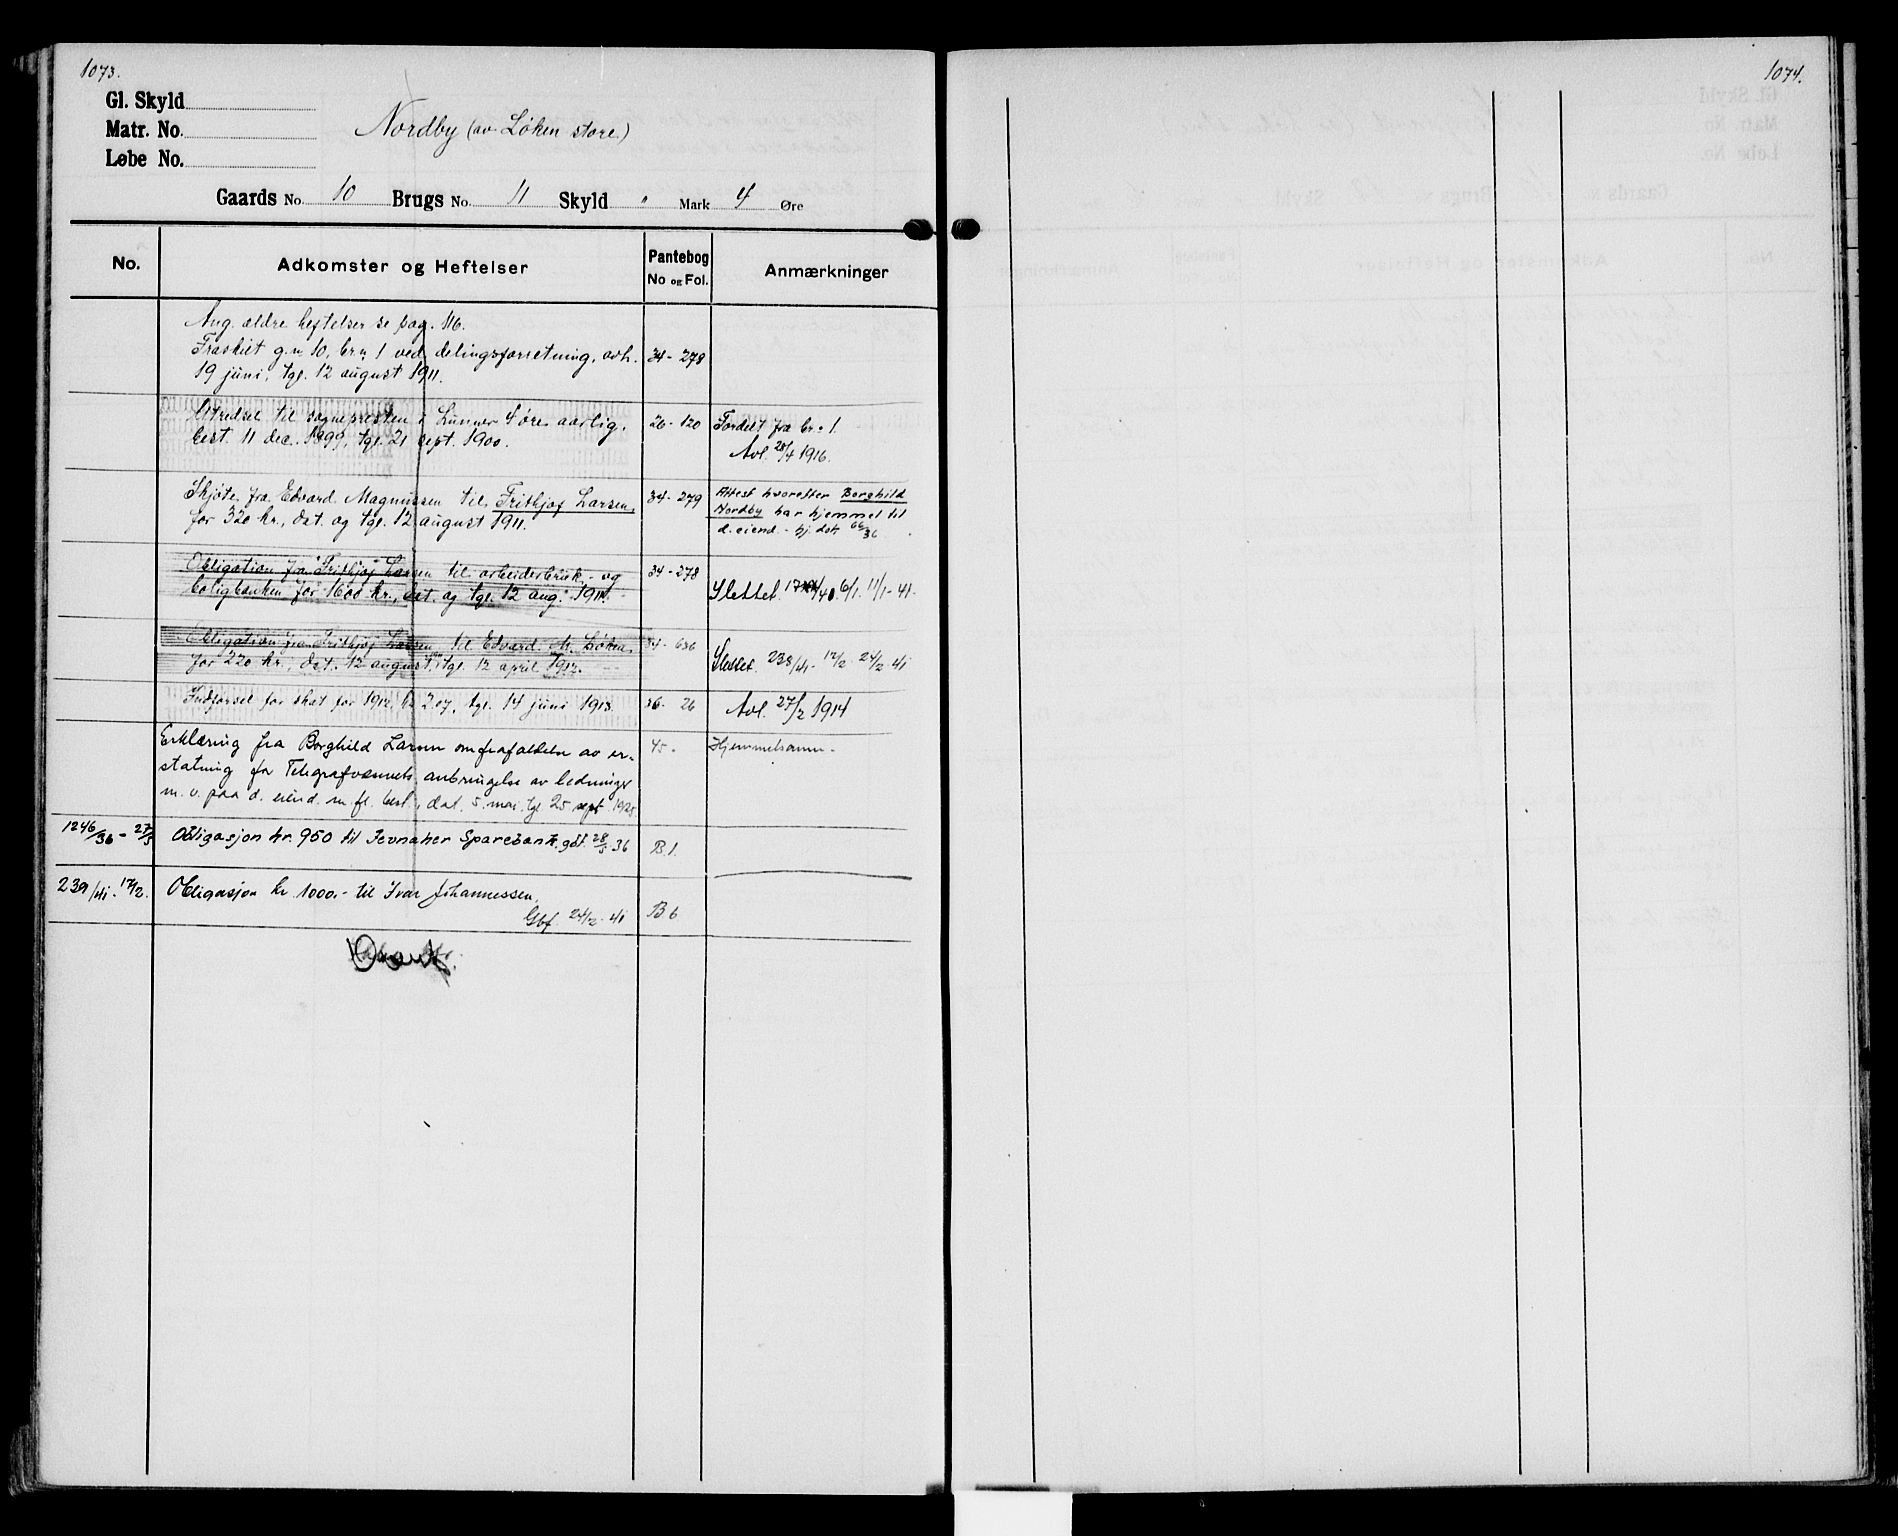 1073.
Gl. Skyld
Matr. No.
Løbe No.
Nordby (av Løken store)
Gaards No. 10 Brugs No. 11 Skyld " Mark 4 Øre
No.
Adkomster og Heftelser
Pantebog
No og Fol.
Anmærkninger
Ang. ældre heftelser se pag. 116.
Fraskilt g.n 10, br.n 1 ved delingsforretning, avh. 34 - 278
19 juni, tgl. 12 august 1911.
Utredsel til sognepresten i Lunner 4 øre aarlig, 26 - 120 Fordelt fra br.n 1.
best. 11 dec. 1899, tgl. 21 sept. 1900.
Avl. 28/4 1916.
Skjøte fra Edvard Magnussen til Frithjof Larsen, 34 - 279
for 320 kr., dat. og tgl. 12 august 1911.
Attest hvorefter Borghild
Nordby har hjemmel til
d. eiend. - hj. dok 66/36
Obligation fra Frithjof Larsen til arbeiderbruk- og 34 - 278
boligbanken for 1600 kr., dat. og tgl. 12 aug. 1911.
Slettet 6/1. 11/1 - 41.
Obligation fra Frithjof Larsen til Edvard M. Løken, 34 - 636
for 220 kr., dat. 12 august, tgl. 12 april 1912.
Slettet 238/41 - 17/2 24/2 41
Indførsel for skat for 1912, kr 2.07, tgl. 14 juni 1913. 36 - 26 Avl. 27/2 1914
Erklæring fra Borghild Larsen om frafaldelse av er- 45 - Hjemmelsanm.
statning for Telegrafvæsenets anbringelse av ledninger
m. v. paa d. eiend. m. fl. best., dat. 5. mai, tgl 25 sept 1925.
1246/36 - 27/5 Obligasjon kr. 950 til Jevnaker Sparebank. gbf. 28/5 36 B 1.
239/41 - 17/2. Obligasjon kr 1000.- til Ivar Johannessen. B 6
Gbf. 24/2 - 41
1074.